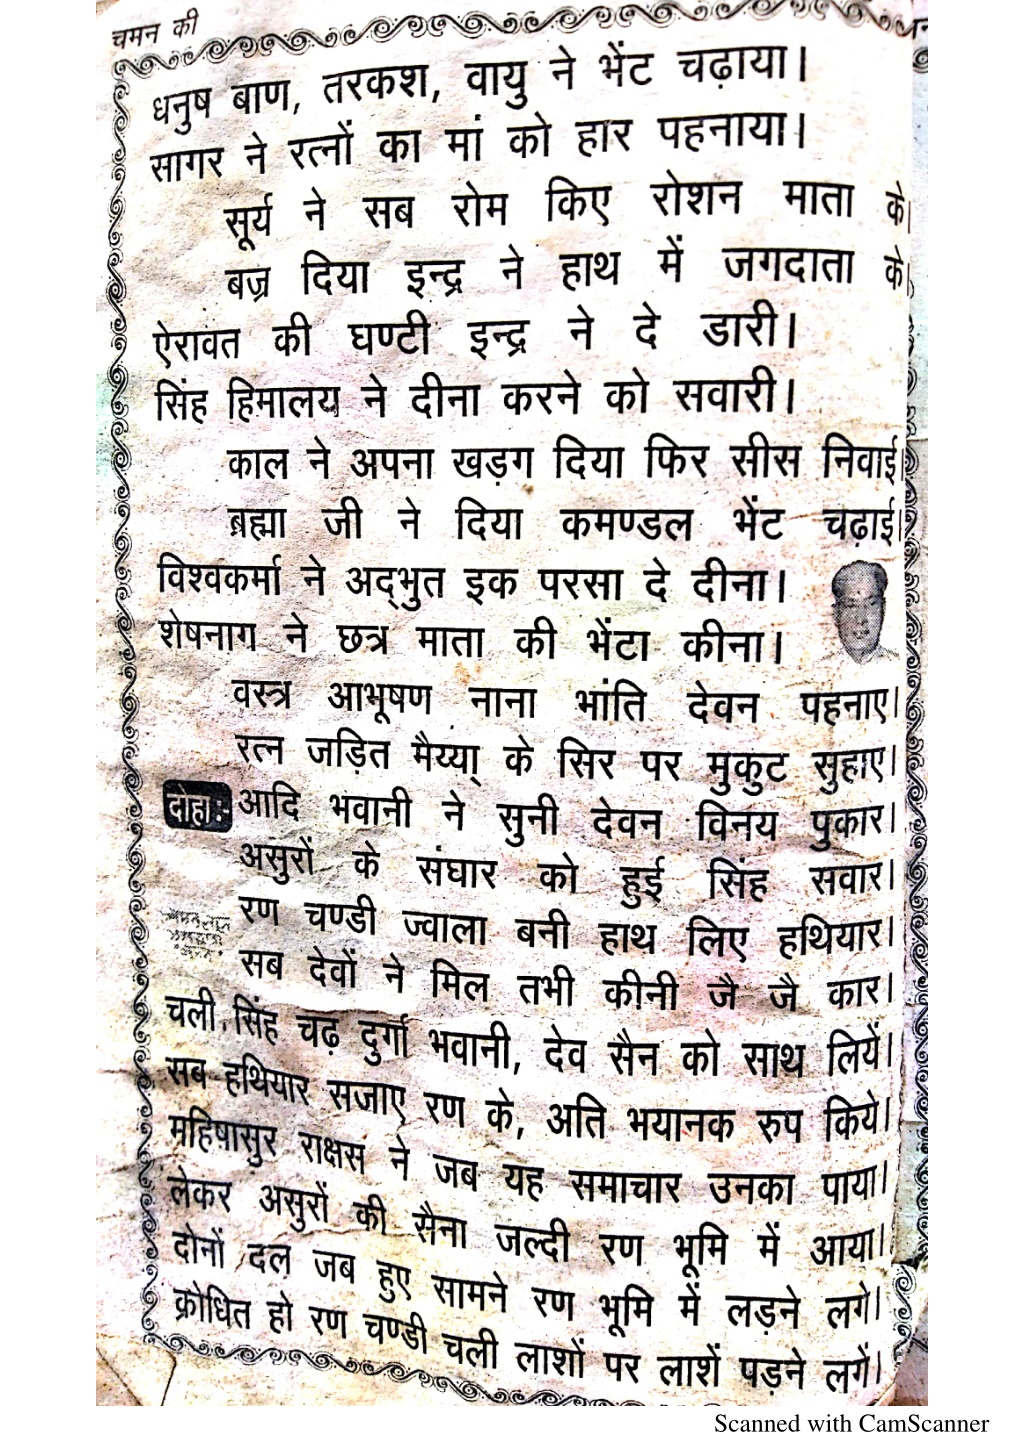 चमन की
धनुष बाण, तरकश, वायु ने भेंट चढ़ाया।
सागर ने रत्नों का मां को हार पहनाया।
सूर्य ने सब रोम किए रोशन माता के।
बज्र दिया इन्द्र ने हाथ में जगदाता के।
ऐरावत की घण्टी इन्द्र ने दे डारी।
सिंह हिमालय ने दीना करने को सवारी।
काल ने अपना खड़ग दिया फिर सीस निवाई।
ब्रह्मा जी ने दिया कमण्डल भेंट चढ़ाई।
विश्वकर्मा ने अद्भुत इक परसा दे दीना।
शेषनाग ने छत्र माता की भेंटा कीना।
वस्त्र आभूषण नाना भांति देवन पहनाए।
रत्न जड़ित मैय्या के सिर पर मुकुट सुहाए।
दोहा:- आदि भवानी ने सुनी देवन विनय पुकार।
असुरों के संघार को हुई सिंह सवार।
रण चण्डी ज्वाला बनी हाथ लिए हथियार।
सब देवों ने मिल तभी कीनी जै जै कार।
चली सिंह चढ़ दुर्गा भवानी, देव सैन को साथ लियें।
सब हथियार सजाए रण के, अति भयानक रुप किये।
महिषासुर राक्षस ने जब यह समाचार उनका पाया।
लेकर असुरों की सैना जल्दी रण भूमि में आया।
दोनों दल जब हुए सामने रण भूमि में लड़ने लगे।
क्रोधित हो रण चण्डी चली लाशों पर लाशें पड़ने लगें।
Scanned with CamScanner